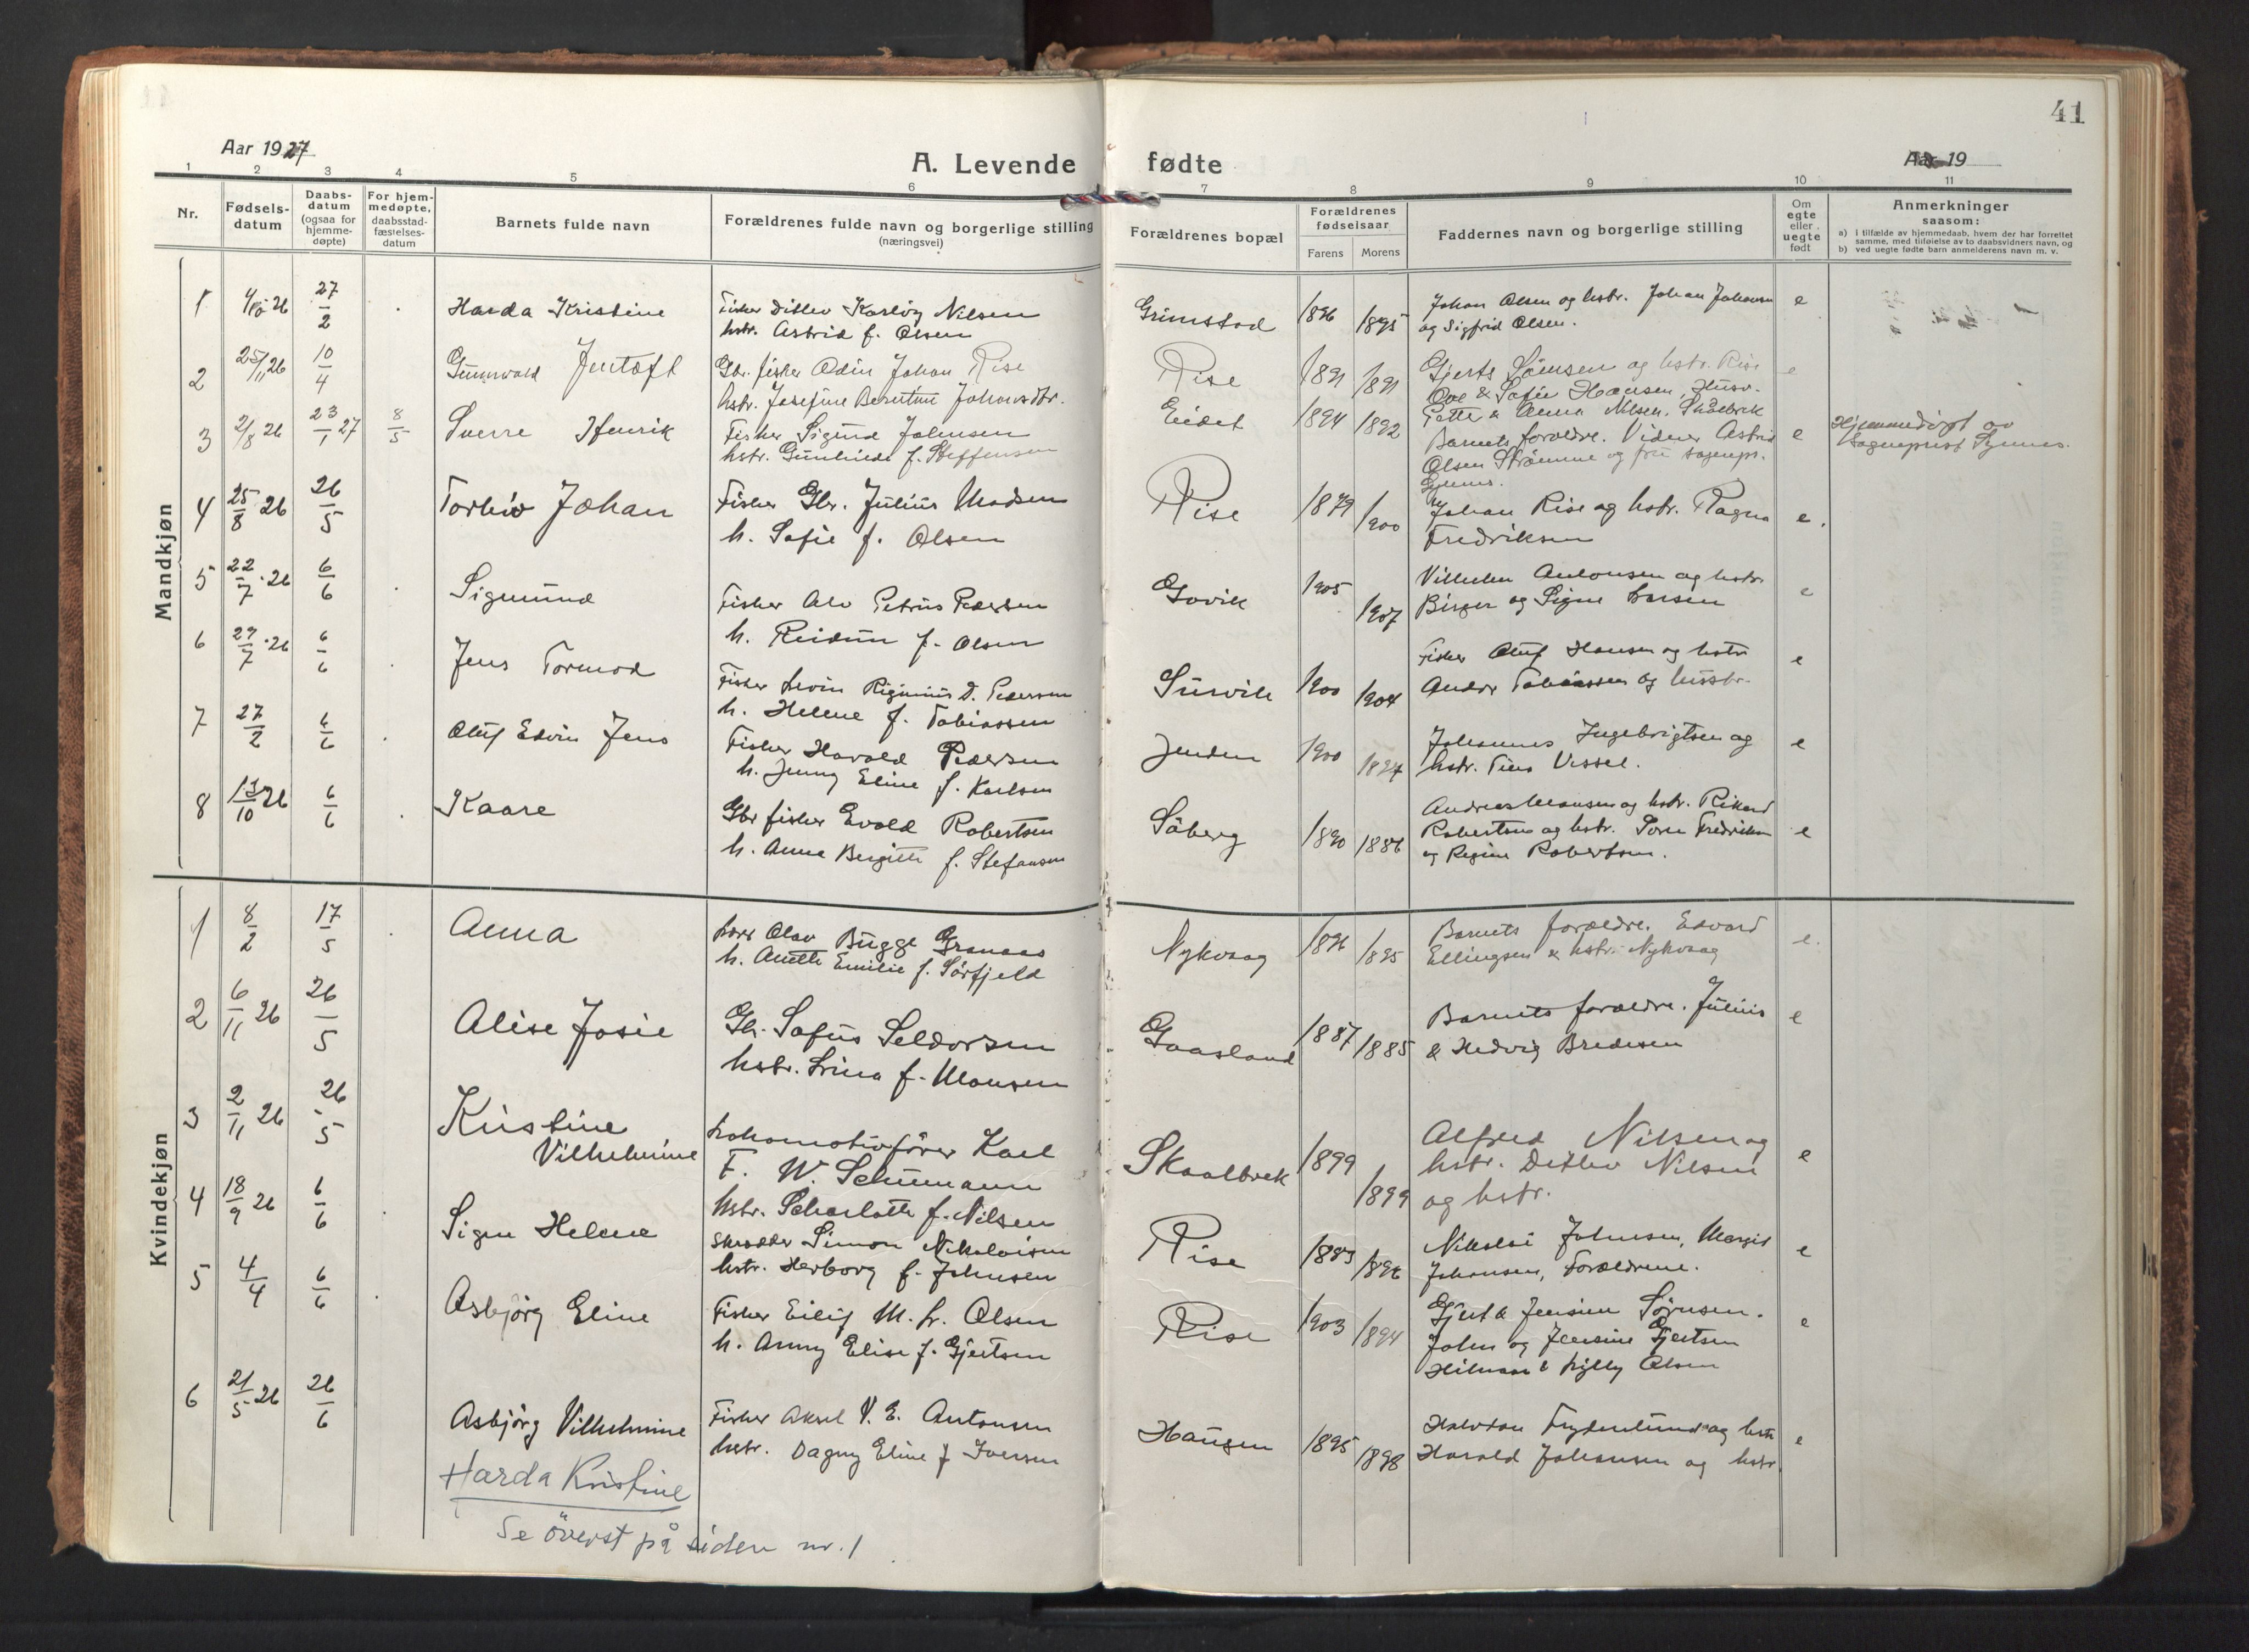 41
Aar 1927
A. Levende fødte
Aar 19
1 2 3 4 5 6 7 8 9 10 11
Nr.
Fødsels-
datum
Daabs-
datum
(ogsaa for
hjemme-
døpte)
For hjem-
medøpte,
daabsstad-
fæstelses-
datum
Barnets fulde navn
Forældrenes fulde navn og borgerlige stilling
(næringsvei)
Forældrenes bopæl
Forældrenes
fødselsaar
Farens Morens
Faddernes navn og borgerlige stilling
Om
egte
eller
uegte
født
Anmerkninger
saasom:
a) i tilfælde av hjemmedaab, hvem der har forrettet
samme, med tilføielse av to daabsvidners navn, og
b) ved uegte fødte barn anmelderens navn m. v.
Mandkjøn
1 4/10 26 27/2 Harda Kristine
Fisker Ditlev Karløy Nilsen
hstr. Astrid f. Olsen
Grimstad 1896 1895
Johan Olsen og hstr. Johan Johansen
og Sigfrid Olsen.
e
2 25/11 26 10/4 Gunnvald Jentoft
Gbr. fisker Odin Johan Rise
hstr. Josefine Berntine Johansdtr.
Rise 1891 1891
Gjerts Sörnsen og hstr. Rise
Ove & Sofie Hansen, Husv.
Petter & Anna Nilsen.
e
3 2/8 26 23/1 27 8/5 Sverre Henrik
Fisker Sigurd Johnsen
hstr. Gunhilda f. Steffensen
Eidet 1894 1892
Barnets foreldre. Vidner Astrid
Olsen Strømme og fru sognepr.
e
Hjemmedøpt av
Sogneprest
4 25/8 26 26/5 Torleiv Johan
Fisker Gbr. Julius Madsen
h. Sofie f. Olsen
Rise 1879 1900
Johan Rise og hstr. Ragna
Fredriksen
e.
5 22/7 26 6/6 Sigmund
Fisker Alv Petrus Pedersen
h. Reidun f. Olsen
Govik 1905 1907
Vilhelm Antonsen og hstr
Birger og Signe Larsen
e
6 27/7 26 6/6 Jens Tormod
Fisker Levin Riginius D. Pedersen
h. Helene f. Tobiassen
Survik 1900 1904
Fisker Oluf Hansen og hstr
Andor Tobiassen og husstr.
e
7 27/2 6/6 Oluf Edvin Jens
Fisker Harald Pedersen
h. Jenny Eline f. Karlsen
1900 1897
Johannes Ingebrigtsen og
hstr. Tina Vessel.
e
8 13/10 26 6/6 Kaare
Gbr fisker Evald Robertsen
h. Anna Bergitte f. Stefansen
Söberg 1890 1886
Andreas Mausen og hstr. Rikard
Robertsen og hstr. Soren Fredriksen
og Regine Robertsen.
e
Kvindekjøn
1 8/2 17/5 Anna
Lærer Olav Bugge Granaas
h. Anette Emilie f. Sørfjeld
Nykvaag 1896 1895
Barnets forældre. Edvard
Ellingsen & hstr. Nykvaag
e.
2 6/11 26 26/5 Alise Josie
Gbr. Sofus Seldorsen
hstr. Lina f. Mausen
Gaasland 1887 1885
Barnets forældre. Julius
& Hedvig Bredesen
e
3 2/11 26 26/5 Kristine
Vilhelmine
Lokomotivfører Karl
F. W. Schumann
hstr. Scharlotte f. Nilsen
Skaalbrek 1899 1899
Alfred Nilsen og
hstr. Ditlev Nilsen
og hstr.
e
4 18/9 26 6/6 Signe Helene
Skrædder Simon Nikolaisen
hstr. Herborg f. Johnsen
Rise 1883 1896
Nikolai Johnsen, Margit
Johansen, Forældrene.
e
5 4/4 6/6 Asbjörg Eline
Fisker Eilif M. L. Olsen
h. Anny Elise f. Gjertsen
Rise 1903 1894
Gjert & Jensine Sørnsen.
John og Jensine Gjertsen
Hilmar & Lylly Olsen
e
6 21/5 26 26/6 Asbjörg Vilhelmine
Fisker Aksel V. E. Antonsen
hstr. Dagny Eline f Iversen
Haugen 1895 1898
Halvdan Frydenlund og hstr
Harald Johansen og hstr.
e
Harda Kristine
Se överst på siden nr. 1